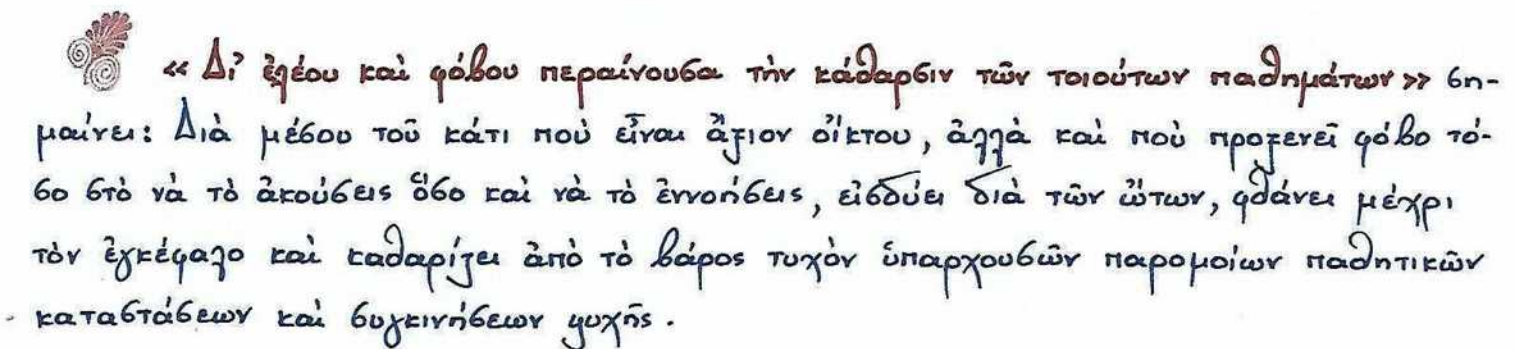 «Δι' ἐλέου καὶ φόβου περαίνουσα τὴν κάθαρσιν τῶν τοιούτων παθημάτων» ση-
μαίνει: Διὰ μέσου τοῦ κάτι ποὺ εἶναι ἄξιον οἴκτου, ἀλλὰ καὶ ποὺ προξενεῖ φόβο τό-
σο στὸ νὰ τὸ ἀκούσεις ὅσο καὶ νὰ τὸ ἐννοήσεις, εἰσδύει διὰ τῶν ὤτων, φθάνει μέχρι
τὸν ἐγκέφαλο καὶ καθαρίζει ἀπὸ τὸ βάρος τυχὸν ὑπαρχουσῶν παρομοίων παθητικῶν
καταστάσεων καὶ συγκινήσεων ψυχῆς.